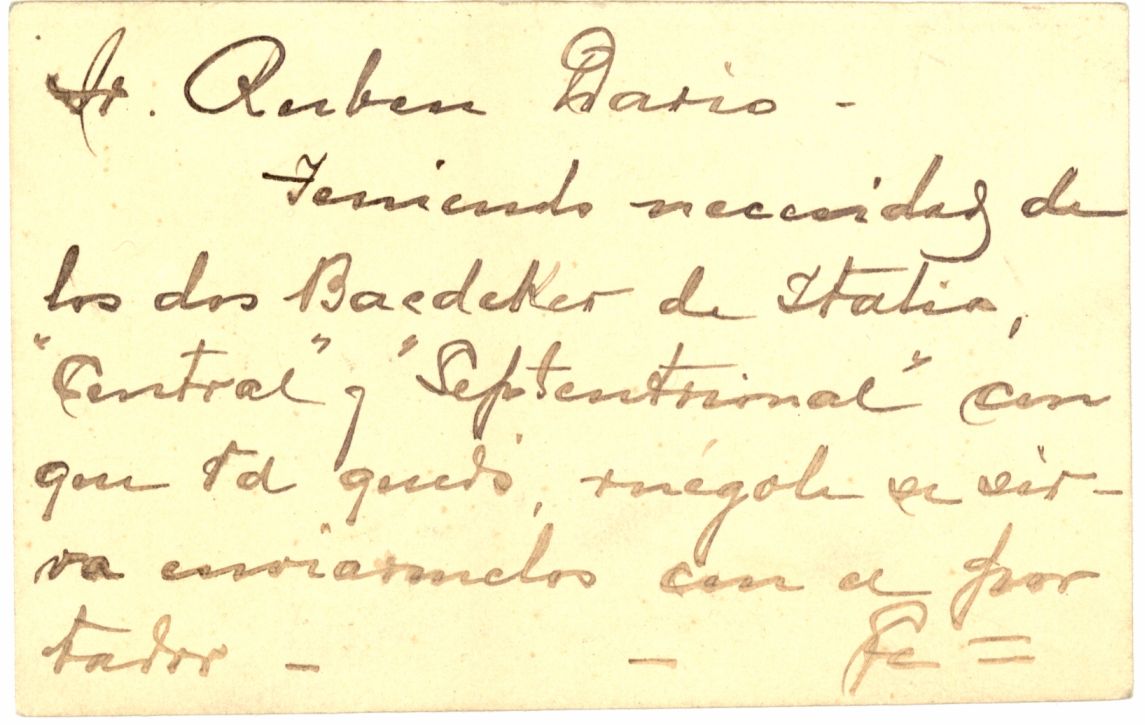 Sr. Ruben Dario -
Teniendo necesidad de
los dos Baedeker de Italia,
"Central" y "Septentrional" con
que Vd quedó, ruégole se sir-
va enviármelos con el por
tador - -